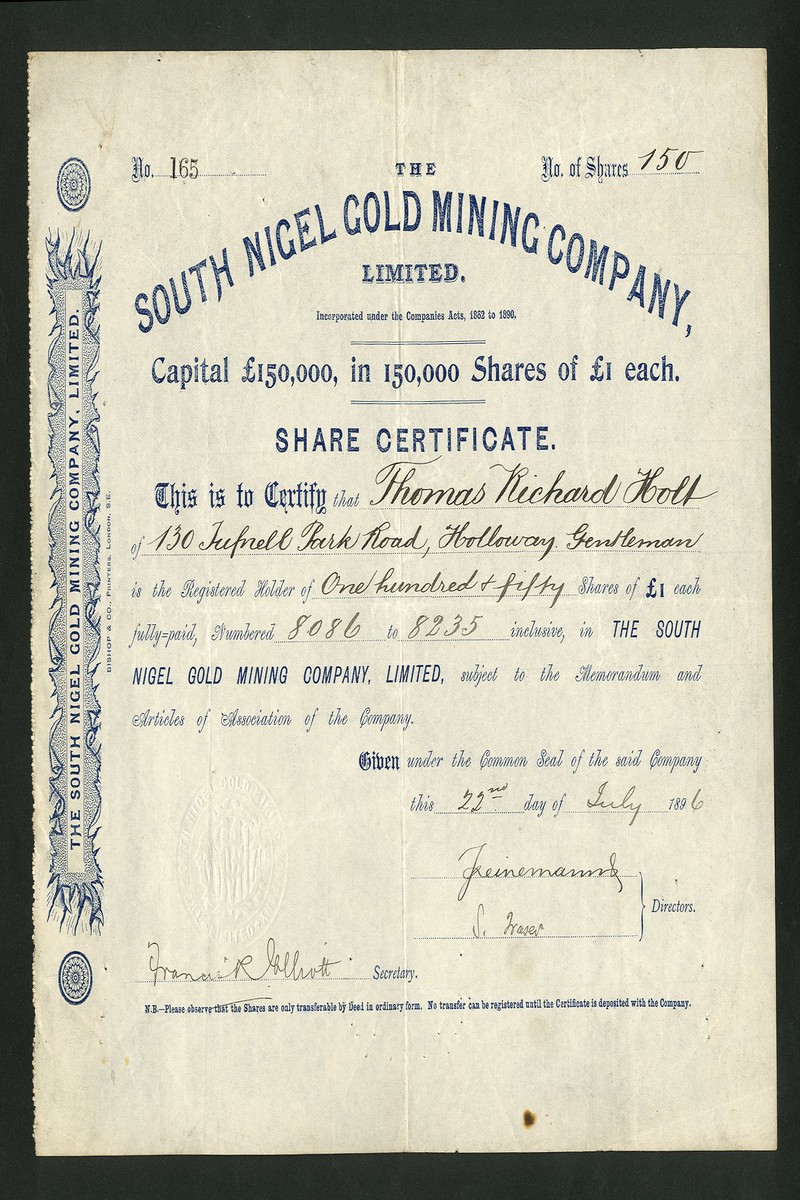 No. 165
No. of Shares 150
THE
SOUTH NIGEL GOLD MINING COMPANY,
LIMITED.
Incorporated under the Companies Acts, 1862 to 1890.
Capital £150,000, in 150,000 Shares of £1 each.
SHARE CERTIFICATE.
This is to Certify that Thomas Richard Holt
of 130 Tufnell Park Road, Holloway. Gentleman
is the Registered Holder of One hundred & fifty Shares of £1 each
fully=paid, Numbered 8086 to 8235 inclusive, in THE SOUTH
NIGEL GOLD MINING COMPANY, LIMITED, subject to the Memorandum and
Articles of Association of the Company.
Given under the Common Seal of the said Company
this 22nd day of July 1896
S. Fraser
Directors.
Francis R Elliott Secretary.
N.B.—Please observe that the Shares are only transferable by Deed in ordinary form. No transfer can be registered until the Certificate is deposited with the Company.
THE SOUTH NIGEL GOLD MINING COMPANY, LIMITED.
BISHOP & CO., PRINTERS, LONDON, S.E.